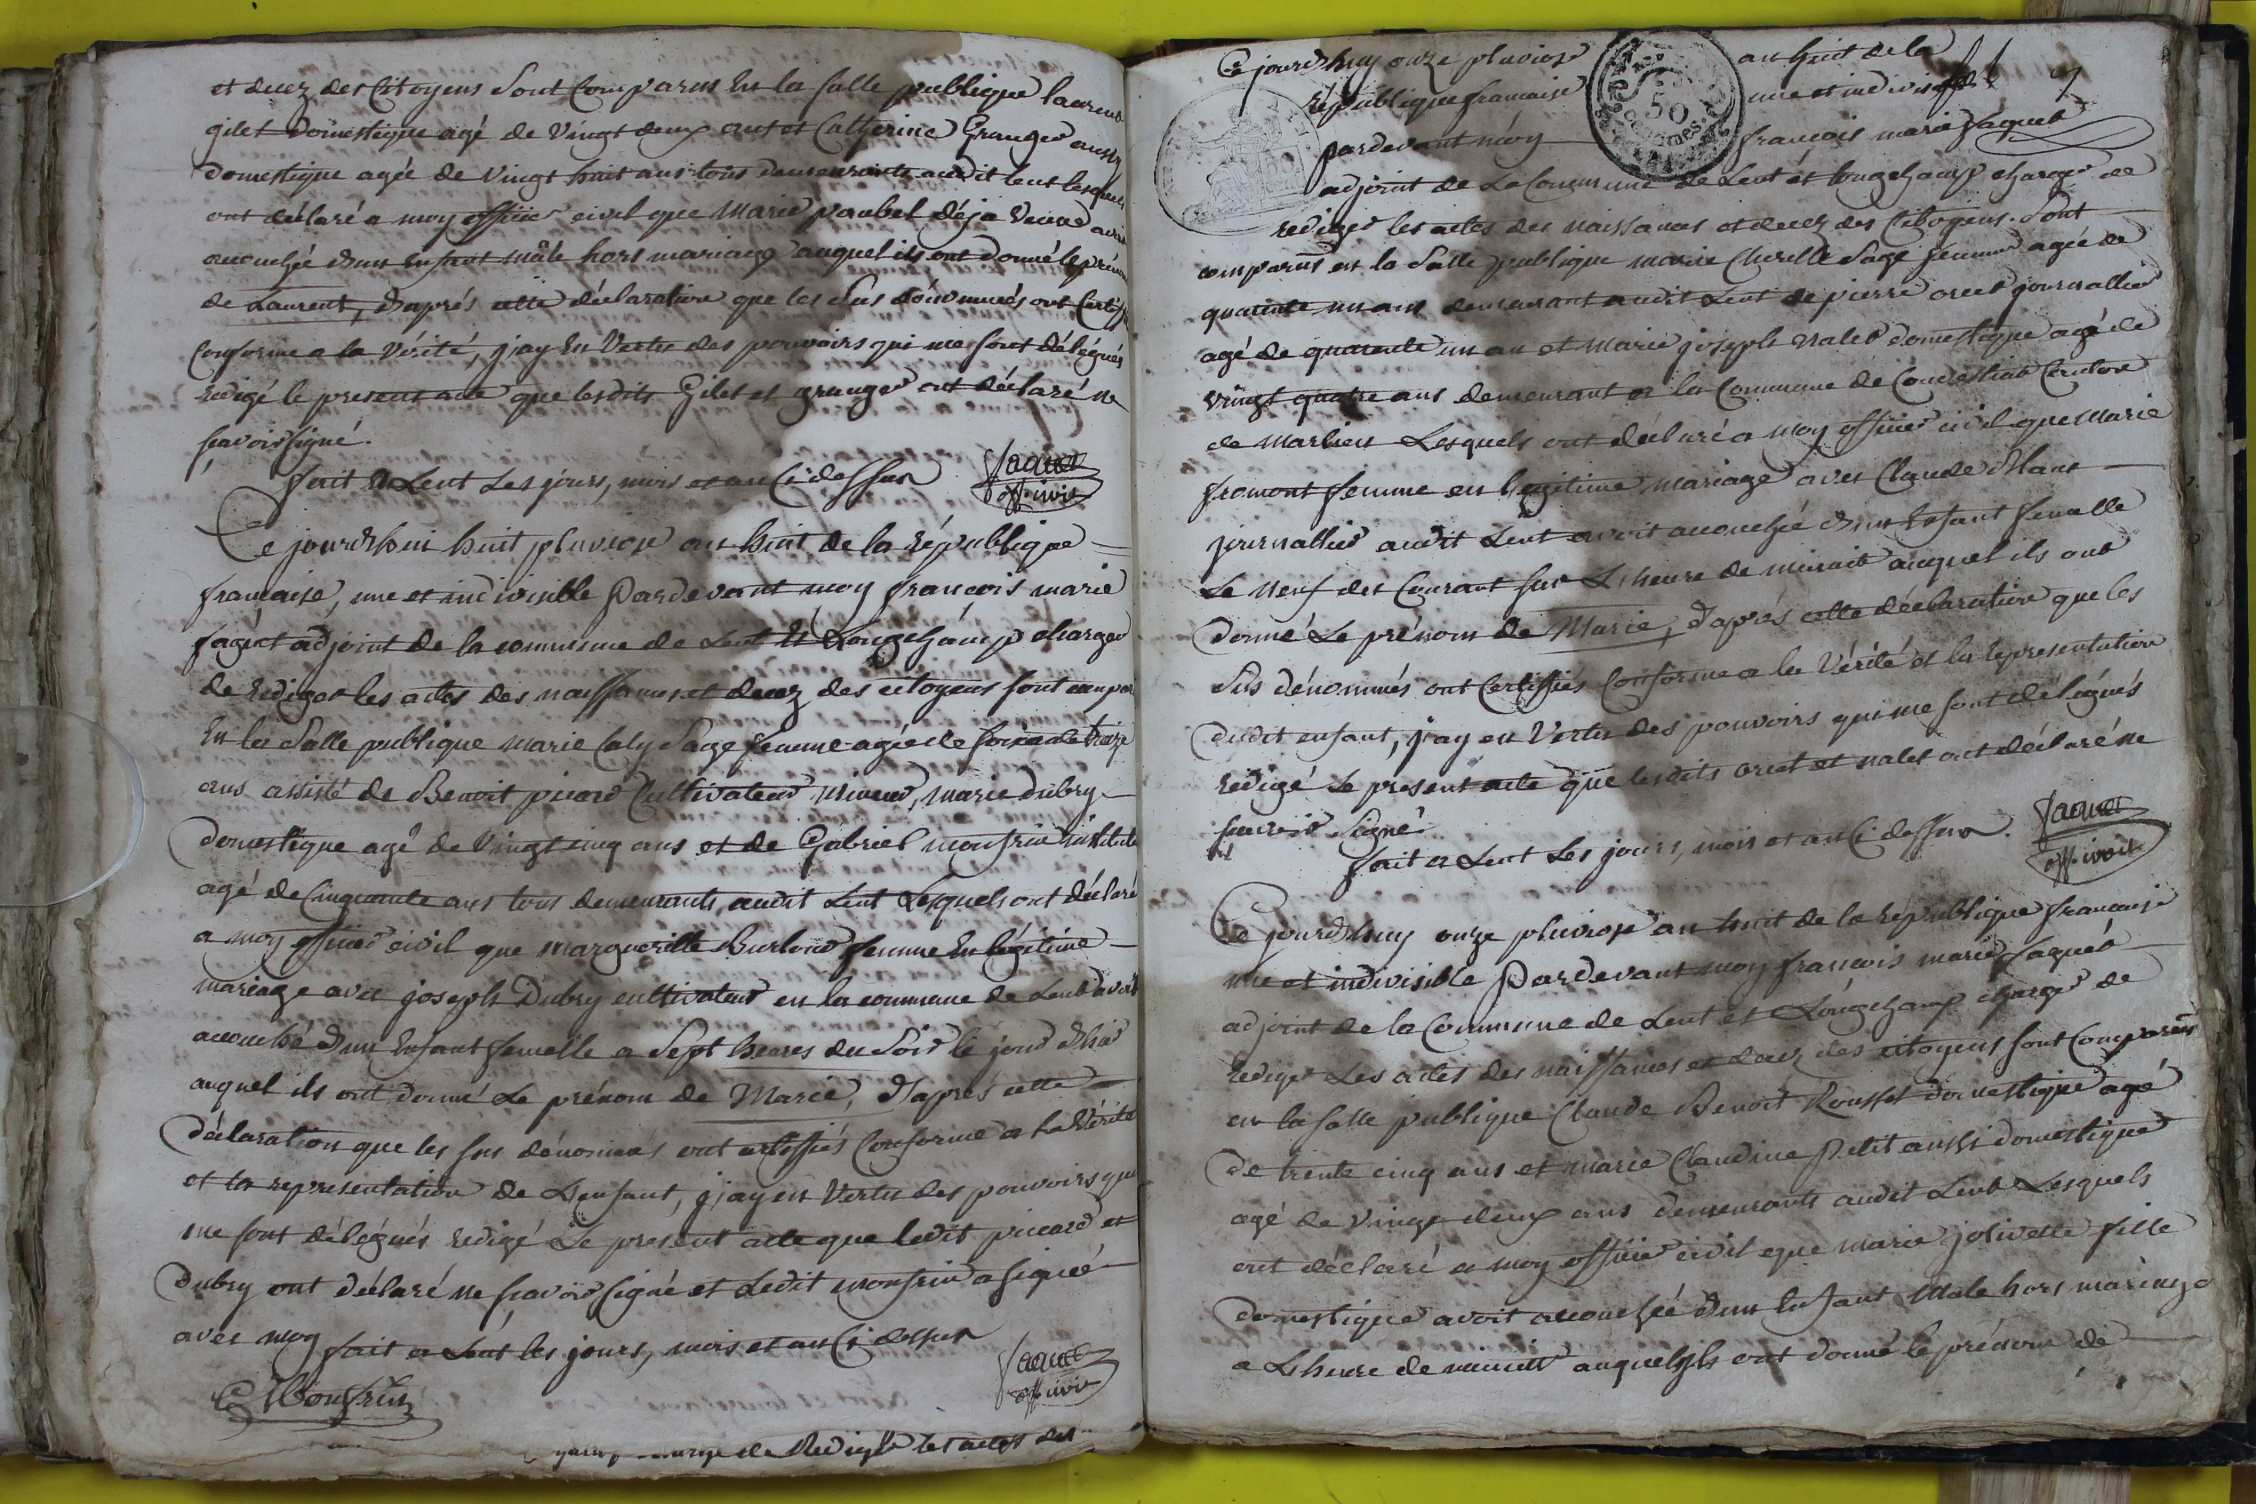 et decez des Citoyens Sont Comparus En la Salle publique laurent
gilet domestique agé de vingt deux ans et Catherine Granger aussy
domestique agée de vingt huit ans tous demeurants audit lent lesquels
ont déclaré a moy officier civil que Marie paubel déja Veuve avoit
accouchée d'un Enfant mâle hors mariage auquel ils ont donné le prénom
de Laurent, d'aprés cette déclaration que les Sus dénommés ont Certiffié
Conforme a la Vérité, j'ay En Vertu des pouvoirs qui me sont délégués
redigé le present acte que lesdits Gilet et granger ont déclaré ne
scavoir signé.
fait a Lent Les jours, mois et an Ci dessus
Jaquet
off. civil
Ce jourd'hui huit pluviose an huit de la république
française, une et indivisible Pardevant moy françois marie
Jaquet adjoint de la commune de Lent et Longchamp chargé
de rediger les actes des naissances et decez des citoyens sont compar
En la Salle publique Marie Caly Sage femme agée de soixante treize
ans assisté de Benoit picard Cultivateur mineur, marie dubry
domestique agé de Vingt cinq ans et de Gabriel monfrin institute
agé de Cinquante ans tous demeurants audit Lent Lesquels ont déclaré
a moy officier civil que marguerille Burlond femme En légitime
mariage avec joseph Dubry cultivateur en la commune de Lent avoit
accouché d'un Enfant femelle a Sept heures du Soir le jour d'hier
auquel ils ont donné Le prénom de Marie, d'aprés cette
déclaration que les sus dénommés ont certiffiés Conforme a la Vérité
et la représentation de L'enfant, j'ay en Vertu des pouvoirs qui
me sont délégués redigé Le present acte que ledit picard et
Dubry ont déclaré ne scavoir signé et Ledit monfrin a signé
avec moy fait a Lent les jours, mois et an Ci dessus
G Monfrin
Jaquet
off. civil
chargé de Rediger les actes des
Ce jourd'huy onze pluviose an huit de la
république française une et indivisible
50
centimes
pardevant moy françois marie Jaquet
adjoint de La Commune de Lent et longchamp chargé de
rediger les actes des naissances et decez des Citoyens. Sont
comparus en la Salle publique marie Sage femme agée de
quarente un ans demeurant audit Lent de pierre oret journallier
agé de quarente un an et Marie josephe nalet domestique agé de
vingt quatre ans demeurant a la Commune de Condeissiat Canton
de marlieu Lesquels ont déclaré a moy officier civil que Marie
fromont femme en légitime mariage avec Claude
journallier audit Lent avoit accouchée d'un Enfant femelle
Le Neuf du Courant sur L'heure de minuit auquel ils ont
donné Le prénom de Marie, d'aprés cette déclaration que les
Sus dénommés ont Certiffiés Conforme a la Vérité et la représentation
dudit enfant, j'ay en Vertu des pouvoirs qui me sont délégués
redigé Le présent acte que lesdits oret et nalet ont déclaré ne
scavoir Signé.
fait a Lent Les jours, mois et an Ci dessus.
Jaquet
off. civil
Ce jourd'huy onze pluviose an huit de la république française
une et indivisible Pardevant moy françois marie Jaquet
adjoint de la Commune de Lent et Longchamp chargé de
rediger Les actes des naissances et decez des citoyens sont Comparus
en la salle publique Claude Benoit Rousset domestique agé
de trente cinq ans et marie Claudine Petit aussi domestique
agé de Vingt deux ans demeurants audit Lent Lesquels
ont déclaré a moy officier civil que marie jolivette fille
domestique avoit accouchée d'un Enfant Male hors mariage
a L'heure de minuit auquel ils ont donné le prénom de